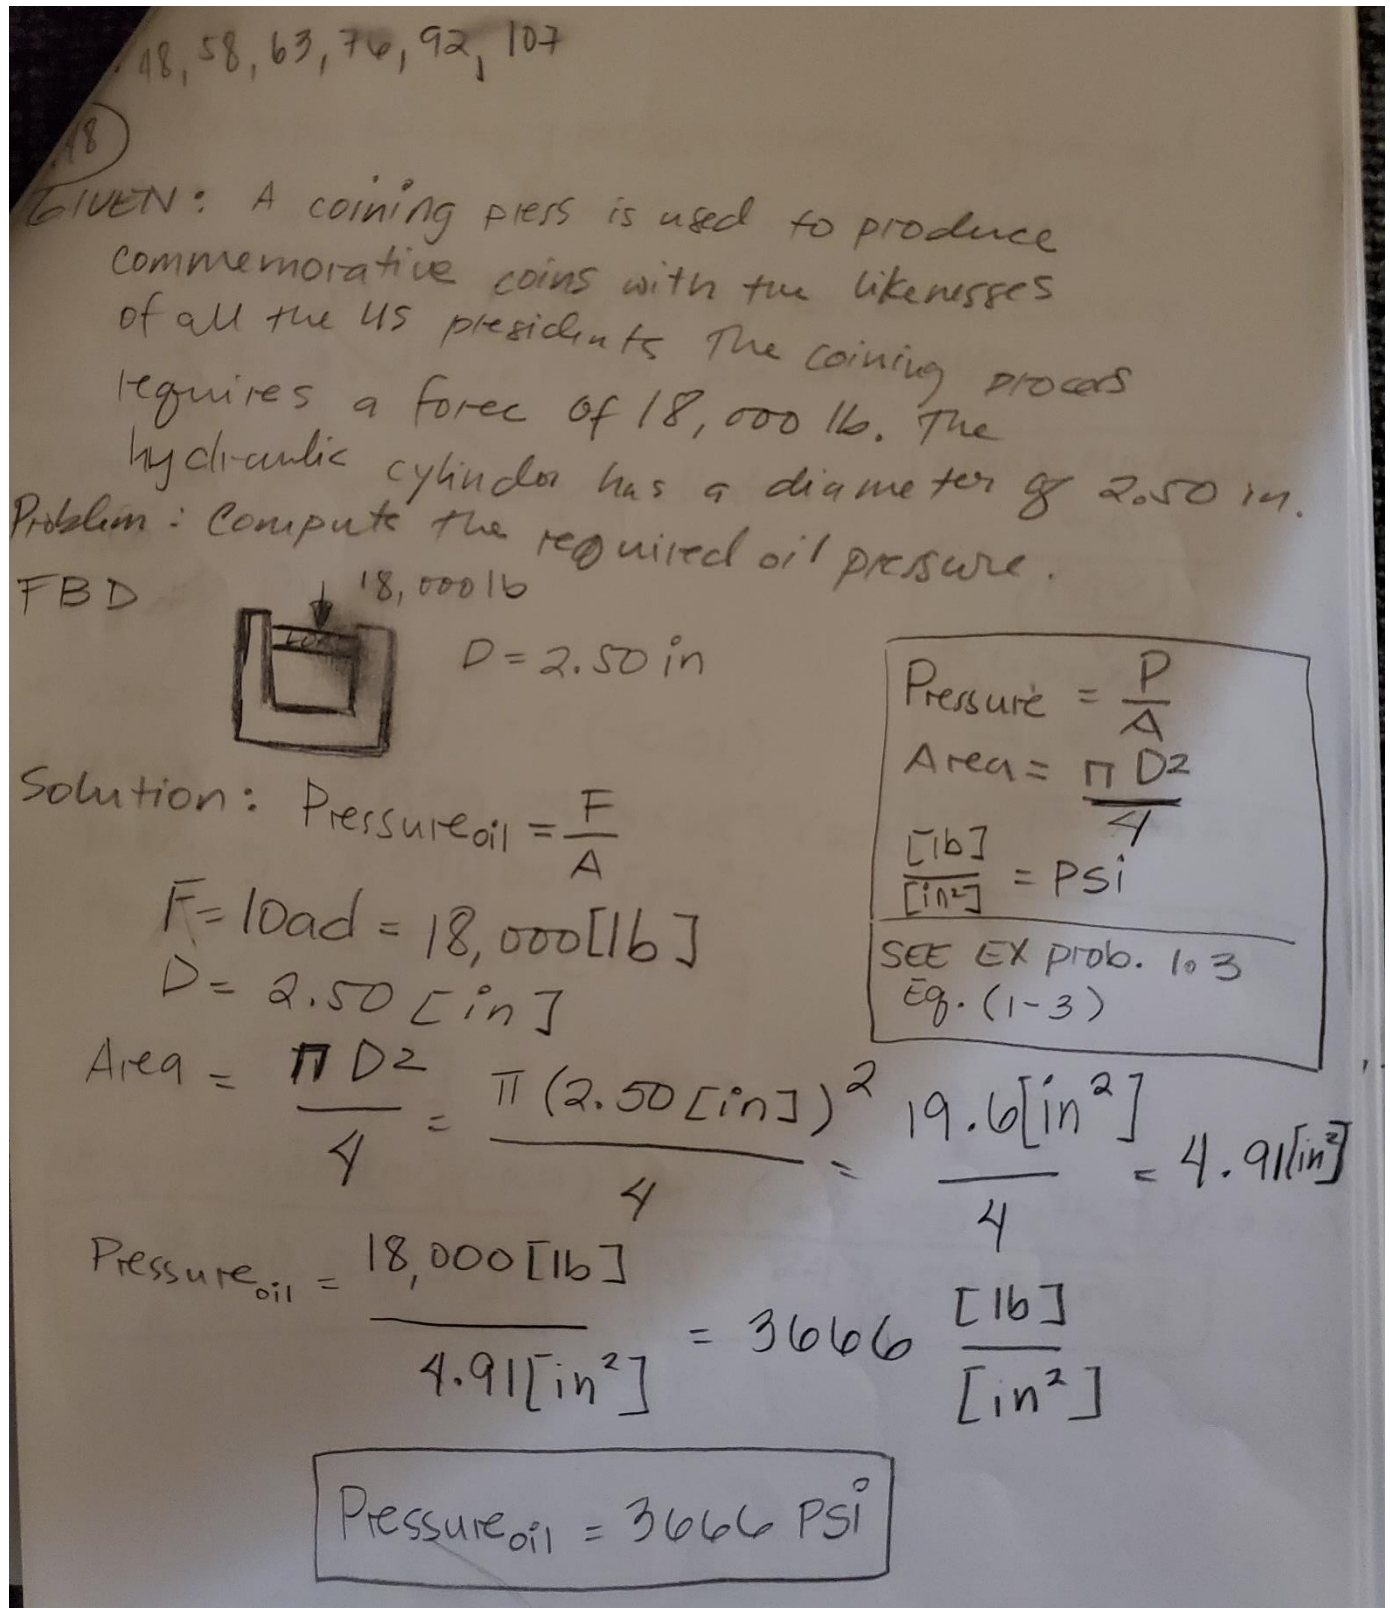 48, 58, 63, 76, 92, 107
48
GIVEN: A coining press is used to produce
commemorative coins with the likenesses
of all the US presidents The coining process
requires a force of 18,000 lb. The
hydraulic cylinder has a diameter of 2.50 in.
Problem: Compute the required oil pressure.
FBD
18,000 lb
D = 2.50 in
Pressure = P/A
Area = π D2/4
[lb]/[in2] = PSi
SEE EX prob. 1.3
Eq. (1-3)
Solution: Pressure oil = F/A
F = load = 18,000 [lb]
D = 2.50 [in]
Area = π D2/4 = π (2.50 [in])²/4 = 19.6 [in²]/4 = 4.91 [in²]
Pressure oil = 18,000 [lb]/4.91 [in²] = 3666 [lb]/[in²]
Pressure oil = 3666 PSi